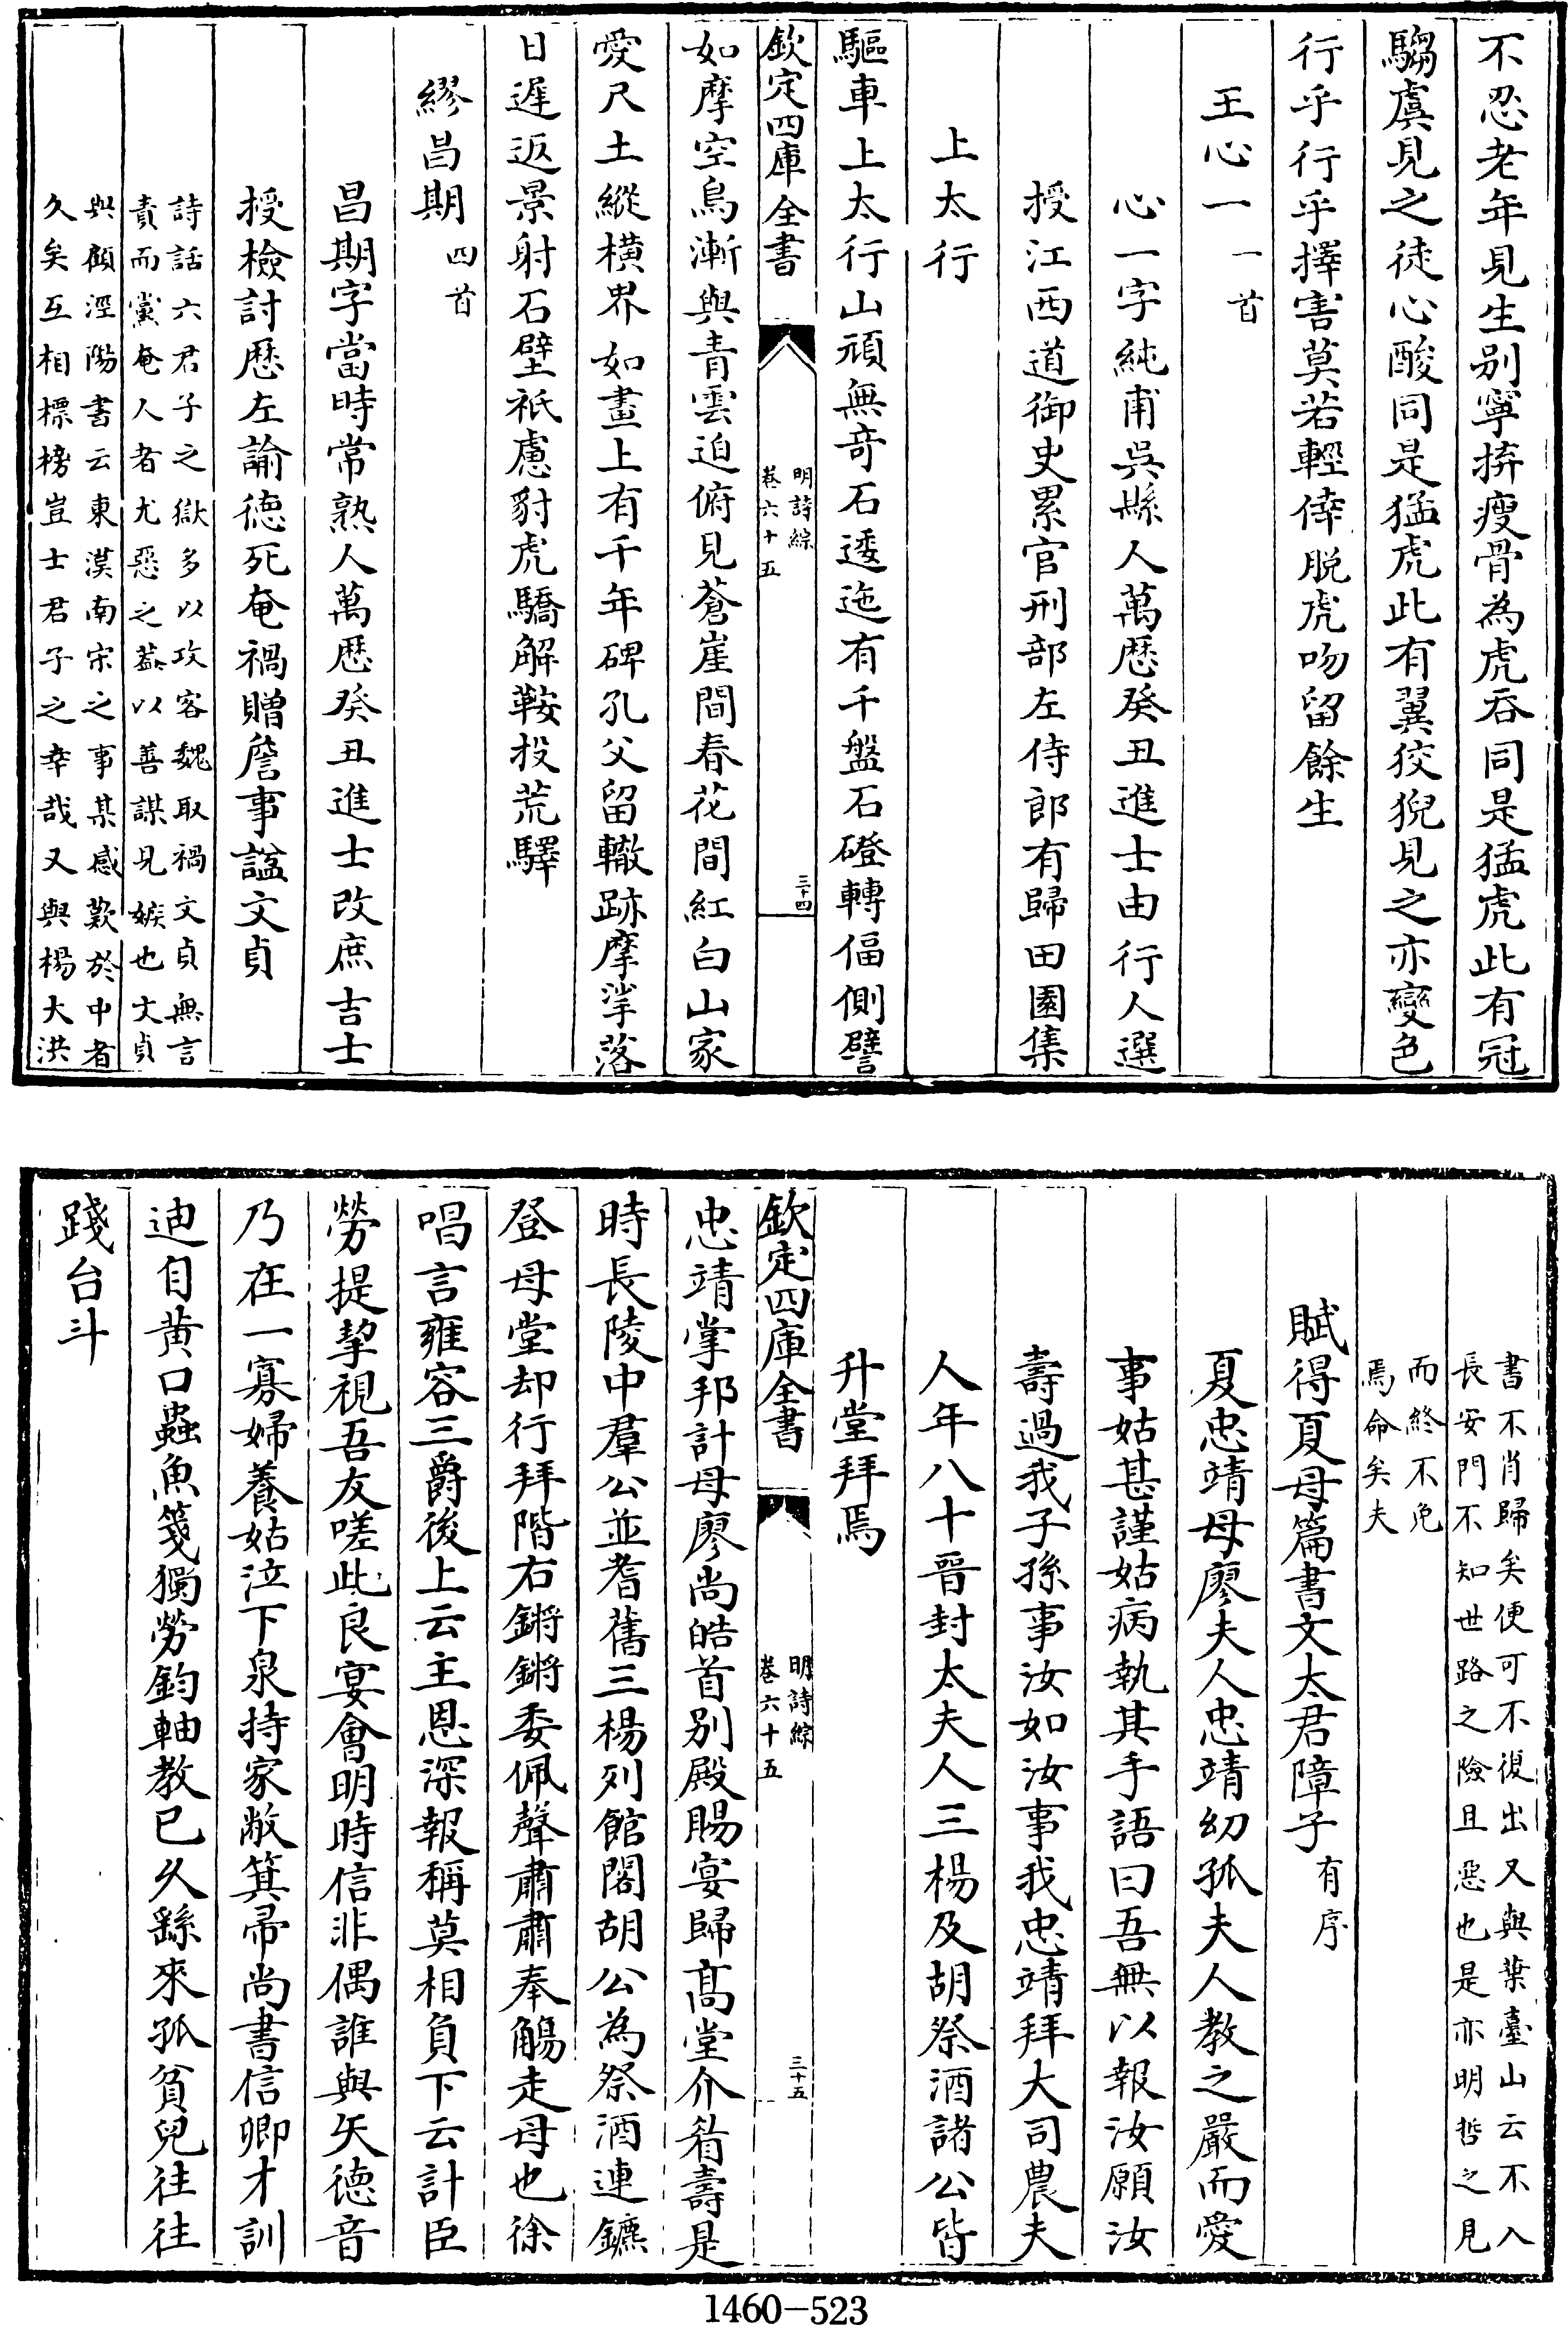 不忍老年見生别寧拚瘦骨為虎吞同是猛虎此有冠
騶虞見之徒心酸同是猛虎此有翼狡猊見之亦變色
行乎行乎行乎擇害莫若輕倖脱虎吻留餘生
王心一一首
心一字純甫吳縣人萬厯癸丑進士由行人選
授江西道御史累官刑部左侍郎有歸田園集
上太行
驅車上太行山頑無竒石逶迤有千盤石磴轉偪側譬
欽定四庫全書
明詩綜
卷六十五
三十四
如摩空鳥漸與青雲迫俯見蒼崖間春花間紅白山家
愛尺土縱横界如畫上有千年碑孔父留轍跡摩挲落
日遲返景射石壁祇慮豺虎驕解鞍投荒驛
繆昌期四首
昌期字當時常熟人萬厯癸丑進士改庶吉士
授檢討厯左諭德死奄禍贈詹事諡文貞
詩話六君子之獄多以攻客魏取禍文貞無言
責而黨奄人者尤惡之葢以善謀見嫉也文貞
與顧涇陽書云東漢南宋之事某感歎於中者
久矣互相標榜豈士君子之幸哉又與楊大洪
書不肖歸矣便可不復出又與葉臺山云不入
長安門不知世路之險且惡也是亦明哲之見
而終不免
焉命矣夫
賦得夏母篇書文太君障子有序
夏忠靖母廖夫人忠靖幼孤夫人教之嚴而愛
事姑甚謹姑病執其手語曰吾無以報汝願汝
壽過我子孫事汝如汝事我忠靖拜大司農夫
人年八十晉封太夫人三楊及胡祭酒諸公皆
升堂拜焉
欽定四庫全書
明詩綜
卷六十五
三十五
忠靖掌邦計母廖尚皓首别殿賜宴歸髙堂介眉壽是
時長陵中羣公並耆舊三楊列館閣胡公為祭酒連鑣
登母堂却行拜階右鏘鏘委佩聲肅肅奉觴走母也徐
唱言雍容三爵後上云主恩深報稱莫相負下云計臣
勞提挈視吾友嗟此良宴會明時信非偶誰與矢德音
乃在一寡婦養姑泣下泉持家敝箕帚尚書信卿才訓
迪自黄口蟲魚箋獨勞鈞軸教已久繇來孤貧兒往往
踐台斗
1460-523